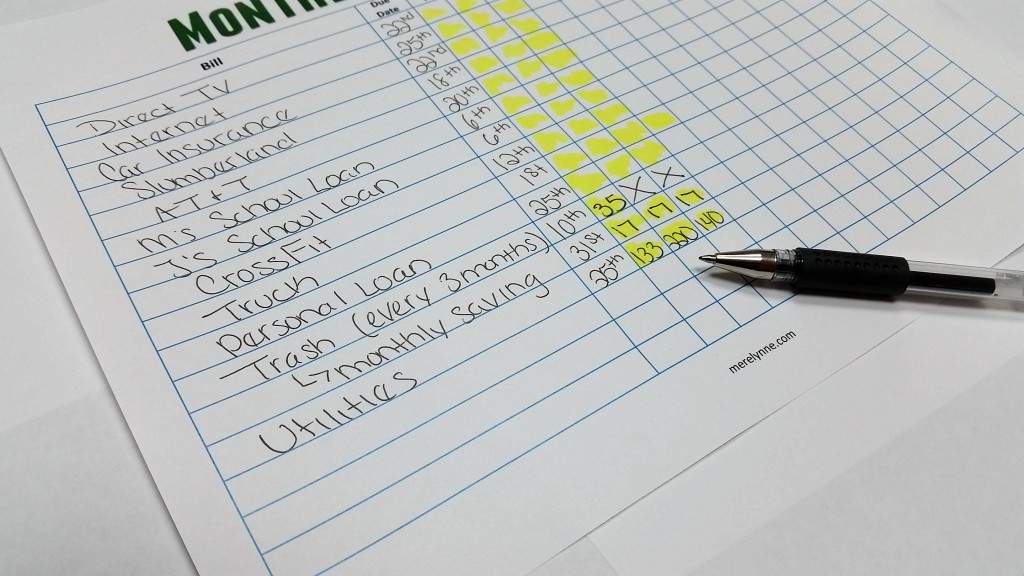 Due
Date
Bill
Direct TV 22nd
Internet 25th
Car Insurance 22nd
Slumberland 18th
AT+T 20th
M's School Loan 6th
J's School Loan 6th
CrossFit 12th
Truck 1st
Personal Loan 25th
Trash (every 3 months) 10th 35 X X
↳ monthly saving 31st 17 17 17
Utilities 25th 133 140
merelynne.com